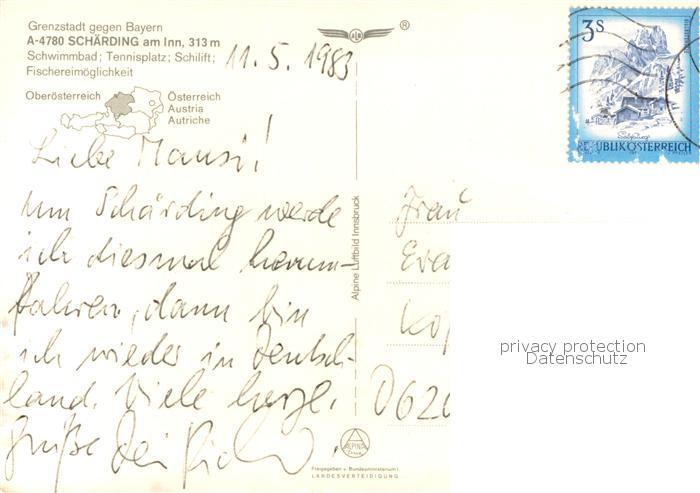 Grenzstadt gegen Bayern
A-4780 SCHÄRDING am Inn, 313 m
Schwimmbad; Tennisplatz; Schilift;
Fischereimöglichkeit
11. 5. 1983
Oberösterreich
Österreich
Austria
Autriche
®
3 S
REPUBLIK ÖSTERREICH
Liebe Mausi!
um Schärding werde
ich diesmal herum-
fahren, dann bin
ich wieder in Deutsch-
land. Viele herzl.
Grüße Dein
Alpine Luftbild Innsbruck
Frau
Eve
Ko
D 620
privacy protection
Datenschutz
ALPINE
Freigegeben v. Bundesministerium f.
LANDESVERTEIDIGUNG